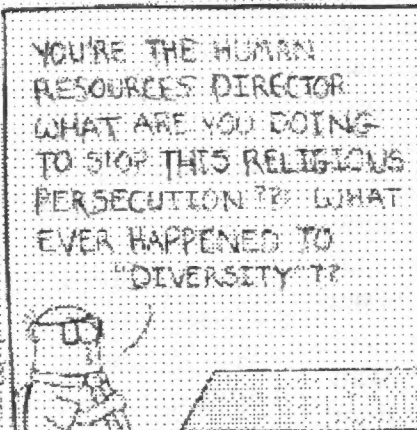 YOU'RE THE HUMAN
RESOURCES DIRECTOR
WHAT ARE YOU DOING
TO STOP THIS RELIGIOUS
PERSECUTION ??? WHAT
EVER HAPPENED TO
"DIVERSITY" ??